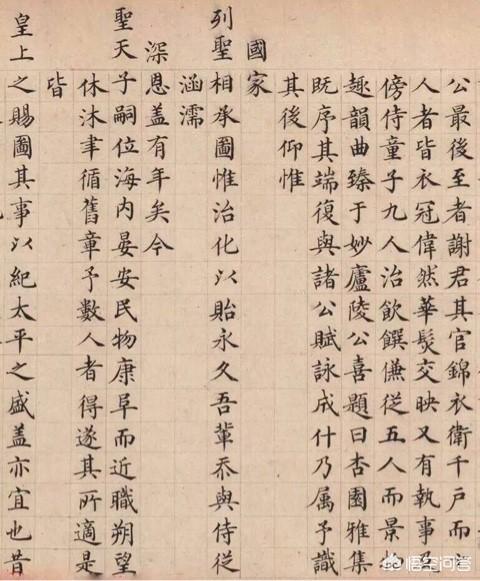 公最後至者謝君其官錦衣衛千戶而
人者皆衣冠偉然華髮交映又有執事及
傍侍童子九人治飲饌傔從五人而景
趣韻曲臻于妙廬陵公喜題曰杏園雅集
既序其端復與諸公賦詠成什乃属予識
其後仰惟
國家
列聖相承圖惟治化以貽永久吾輩忝與侍從
涵濡
深恩盖有年矣今
聖天子嗣位海内晏安民物康阜而近職朔望
休沐聿循舊章予數人者得遂其所適是
皆
皇上之賜圖其事以紀太平之盛盖亦宜也昔
悟空问答